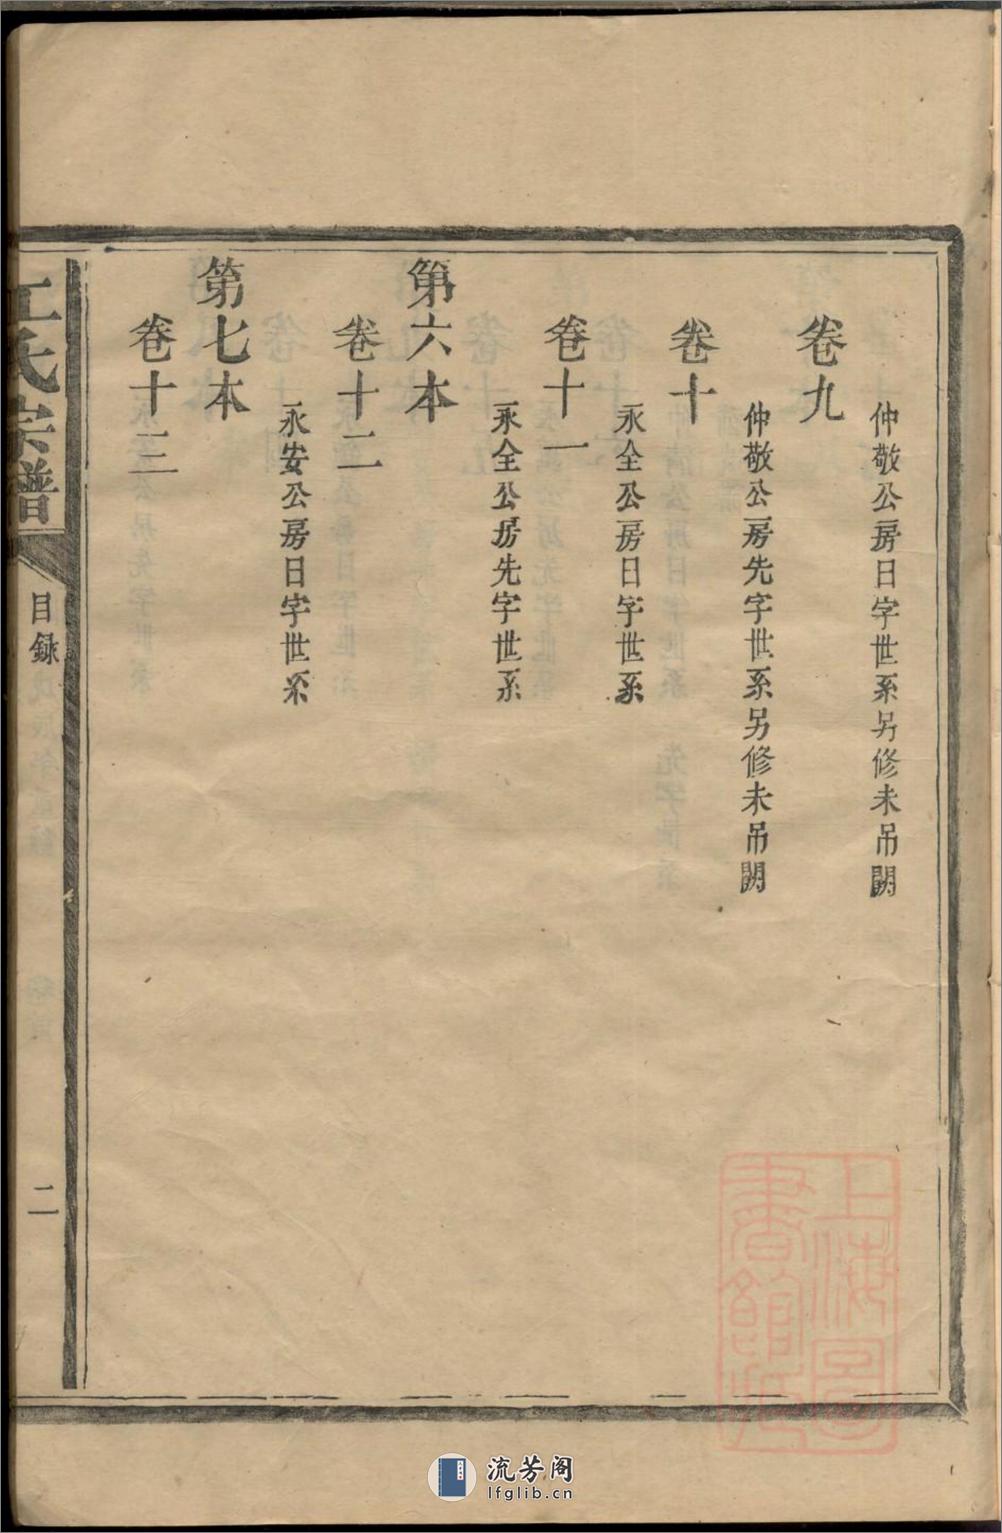 仲敬公房日字世系另修未吊閼
卷九
仲敬公房先字世系另修未吊閼
卷十
永全公房日字世系
卷十一
永全公房先字世系
第六本
卷十二
永安公房日字世系
第七本
卷十三
江氏宗譜
目錄
二
上海圖書館印
流芳阁
lfglib.cn